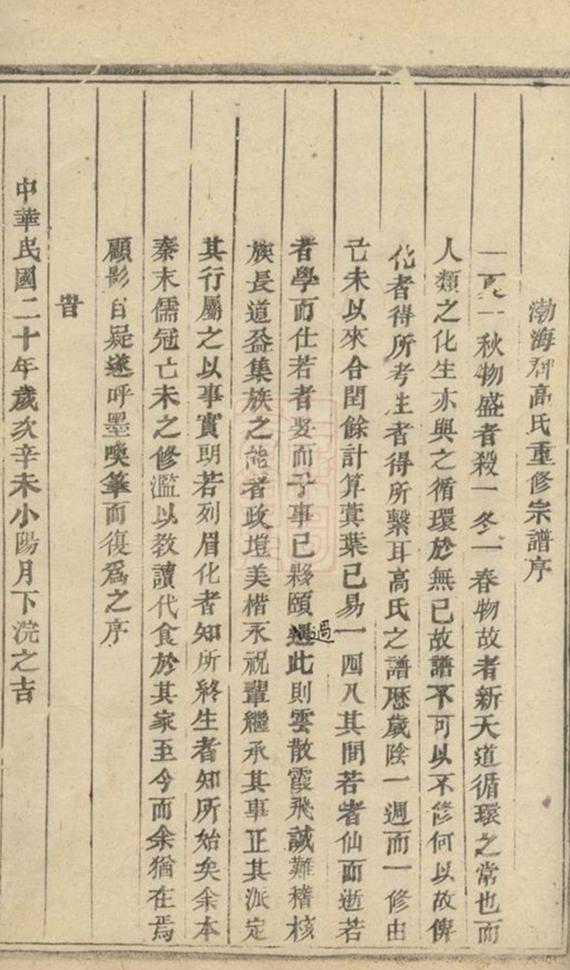 渤海郡高氏重修宗譜序
一夏一秋物盛者殺一冬一春物故者新天道循環之常也而
人類之化生亦與之循環於無已故譜不可以不修何以故俾
化者得所考生者得所繫耳高氏之譜歷歲陰一週而一修由
己未以來合閏餘計算蓂葉已易一四八其間若耆仙而逝若
者學而仕若者娶而子事已夥頤過此則雲散霞飛誠難稽核
族長道益集族之能者政壇美楷永祝輩繼承其事正其派定
其行屬之以事實眀若列眉化者知所終生者知所始矣余本
秦末儒冠亡未之修濫以教讀代食於其家至今而余猶在焉
顧影自疑遂呼墨喚筆而復爲之序
旹
中華民國二十年歲次辛未小陽月下浣之吉